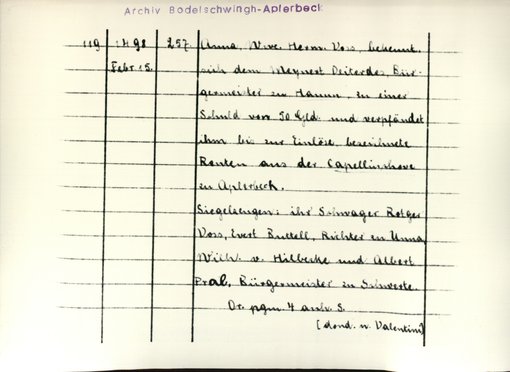 Archiv Bodelschwingh-Aplerbeck
119 1498 257. Anna, Wwe. Herm. Voss, bekennt
Febr. 15. sich dem Meynert Deiterdes, Bür-
germeister zu Hamm, zu einer
Schuld von 50 Gld. und verpfändet
ihm bis zur Einlöse bezeichnete
Renten aus der Capellinchove
zu Aplerbeck.
Siegelzeugen: ihr Schwager Rotger
Voss, Evert Buttell, Richter zu Unna,
Wilh. v. Hilbecke und Albert
Pral, Bürgermeister zu Schwerte
Or. pgm. 4 anh. S.
(dond. n. Valentin)